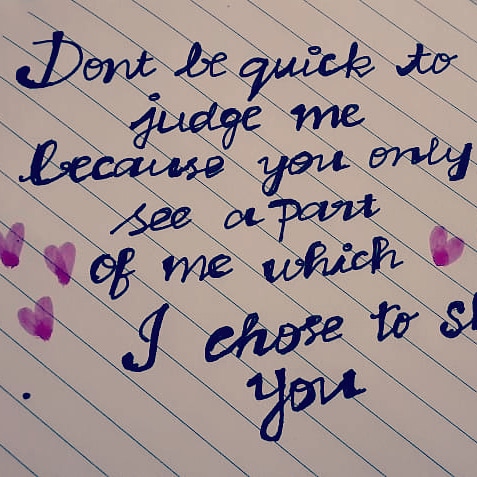 Dont be quick to
judge me
because you only
see a part
of me which
I chose to
you